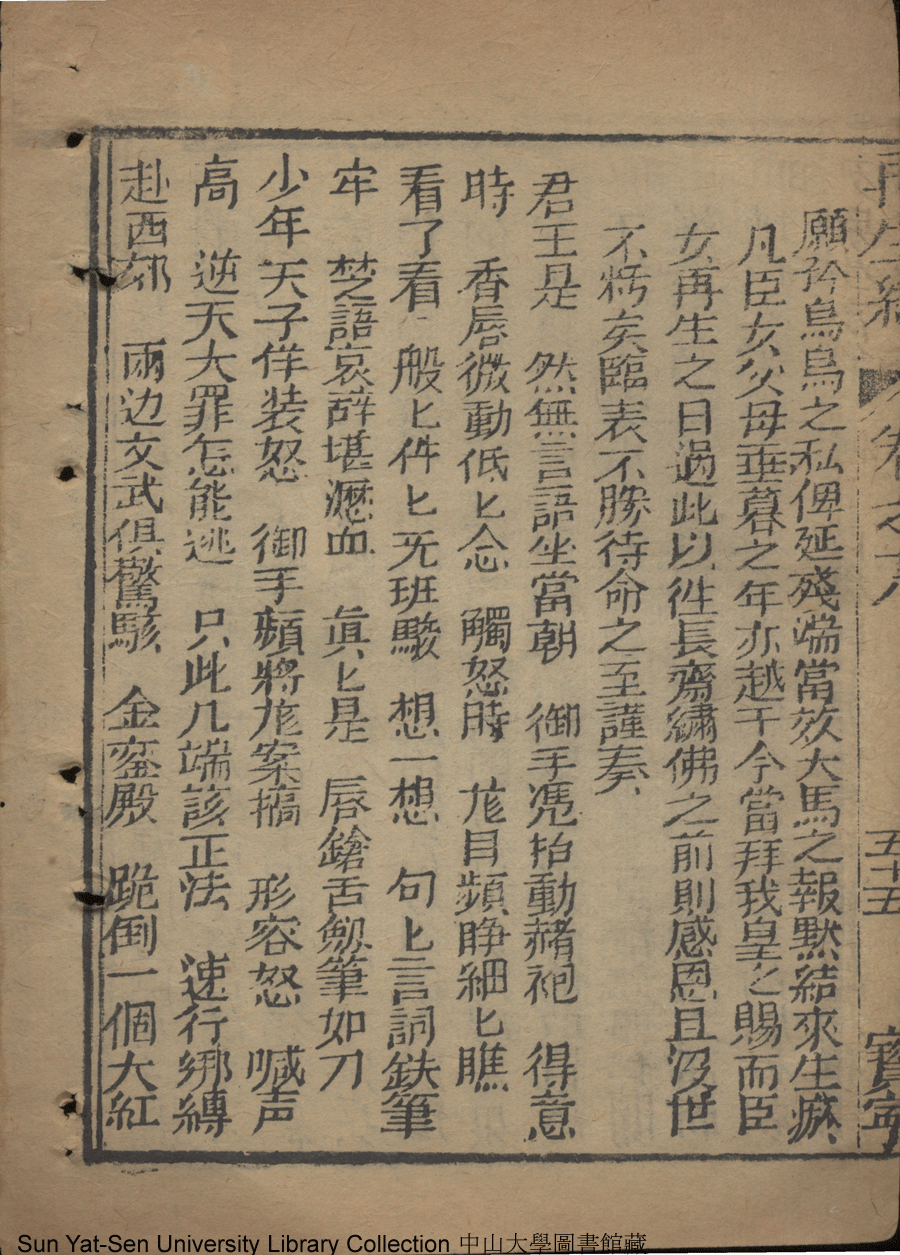 再生緣 卷之十八 五十五 寶寧
願矜烏鳥之私俾延殘喘當效犬馬之報默結來生瘀
凡臣女父母垂暮之年亦越千今當拜我皇之賜而臣
女再生之日過此以徃長齋繡佛之前則感恩且沒世
不㤀矣臨表不勝待命之至謹奏
君王是 然無言語坐當朝 御手凴抬動赭袍 得意
時 香唇微動低匕念 觸怒時 龙目頻睁細匕瞧
看了看 般匕件匕无班駁 想一想 句匕言詞鈇筆
牢 楚語哀辞堪瀝血 眞匕是 唇鎗舌劎筆如刀
少年天子佯装怒 御手頻將龙案搞 形容怒 喊声
高 逆天大罪怎能逃 只此几端該正法 速行綁縛
赴西郊 兩边文武俱驚駭 金鑾殿 跪倒一個大紅
Sun Yat-Sen University Library Collection 中山大學圖書館藏